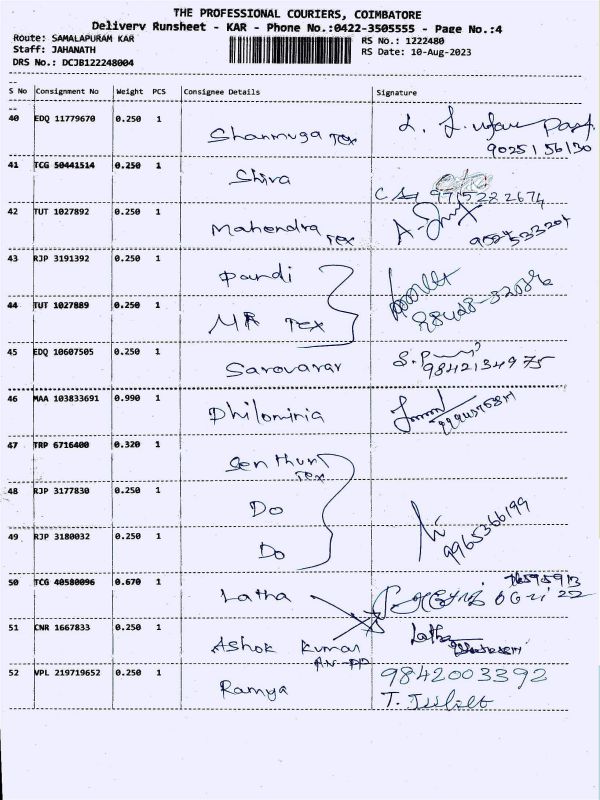 THE PROFESSIONAL COURIERS, COIMBATORE
Delivery Runsheet - KAR - Phone No.:0422-3505555 - Page No.:4
Route: SAMALAPURAM KAR
RS No.: 1222480
Staff: JAHANATH
RS Date: 10-Aug-2023
DRS No.: DCJB122248004
S No Consignment No Weight PCS Consignee Details Signature
40 EDQ 11779670 0.250 1 Shanmuga Tex
9025156130
41 TCG 50441514 0.250 1 Shiva
9715282674
42 TUT 1027892 0.250 1 Mahendra Tex
43 RJP 3191392 0.250 1 Pandi
44 TUT 1027889 0.250 1 MR Tex
45 EDQ 10607505 0.250 1 Sarovarar
9842134975
46 MAA 103833691 0.990 1 Philominia
47 TRP 6716400 0.320 1 Senthur Tex
48 RJP 3177830 0.250 1 Do
9965366199
49 RJP 3180032 0.250 1 Do
50 TCG 40580096 0.670 1 Latha
51 CNR 1667833 0.250 1 Ashok Kumar Latha
AN-PP
52 VPL 219719652 0.250 1 Ramya 9842003392